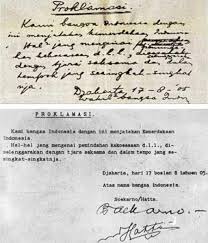 Proklamasi.
Kami bangsa Indonesia dengan
ini menjatakan kemerdekaan Indonesia.
Hal2 jang mengenai
d.l.l.,
dengan tjara saksama dan
tempoh jang sesingkat-singkat
nja.
Djakarta 17-8-'05
Wakil2 bangsa Indonesia
P R O K L A M A S I
Kami bangsa Indonesia dengan ini menjatakan Kemerdekaan
Indonesia.
Hal-hal jang mengenai pemindahan kekoeasaan d.l.l., di-
selenggarakan dengan tjara saksama dan dalam tempo jang se-
singkat-singkatnja.
Djakarta, hari 17 boelan 8 tahoen 05
Atas nama bangsa Indonesia.
Soekarno/Hatta.